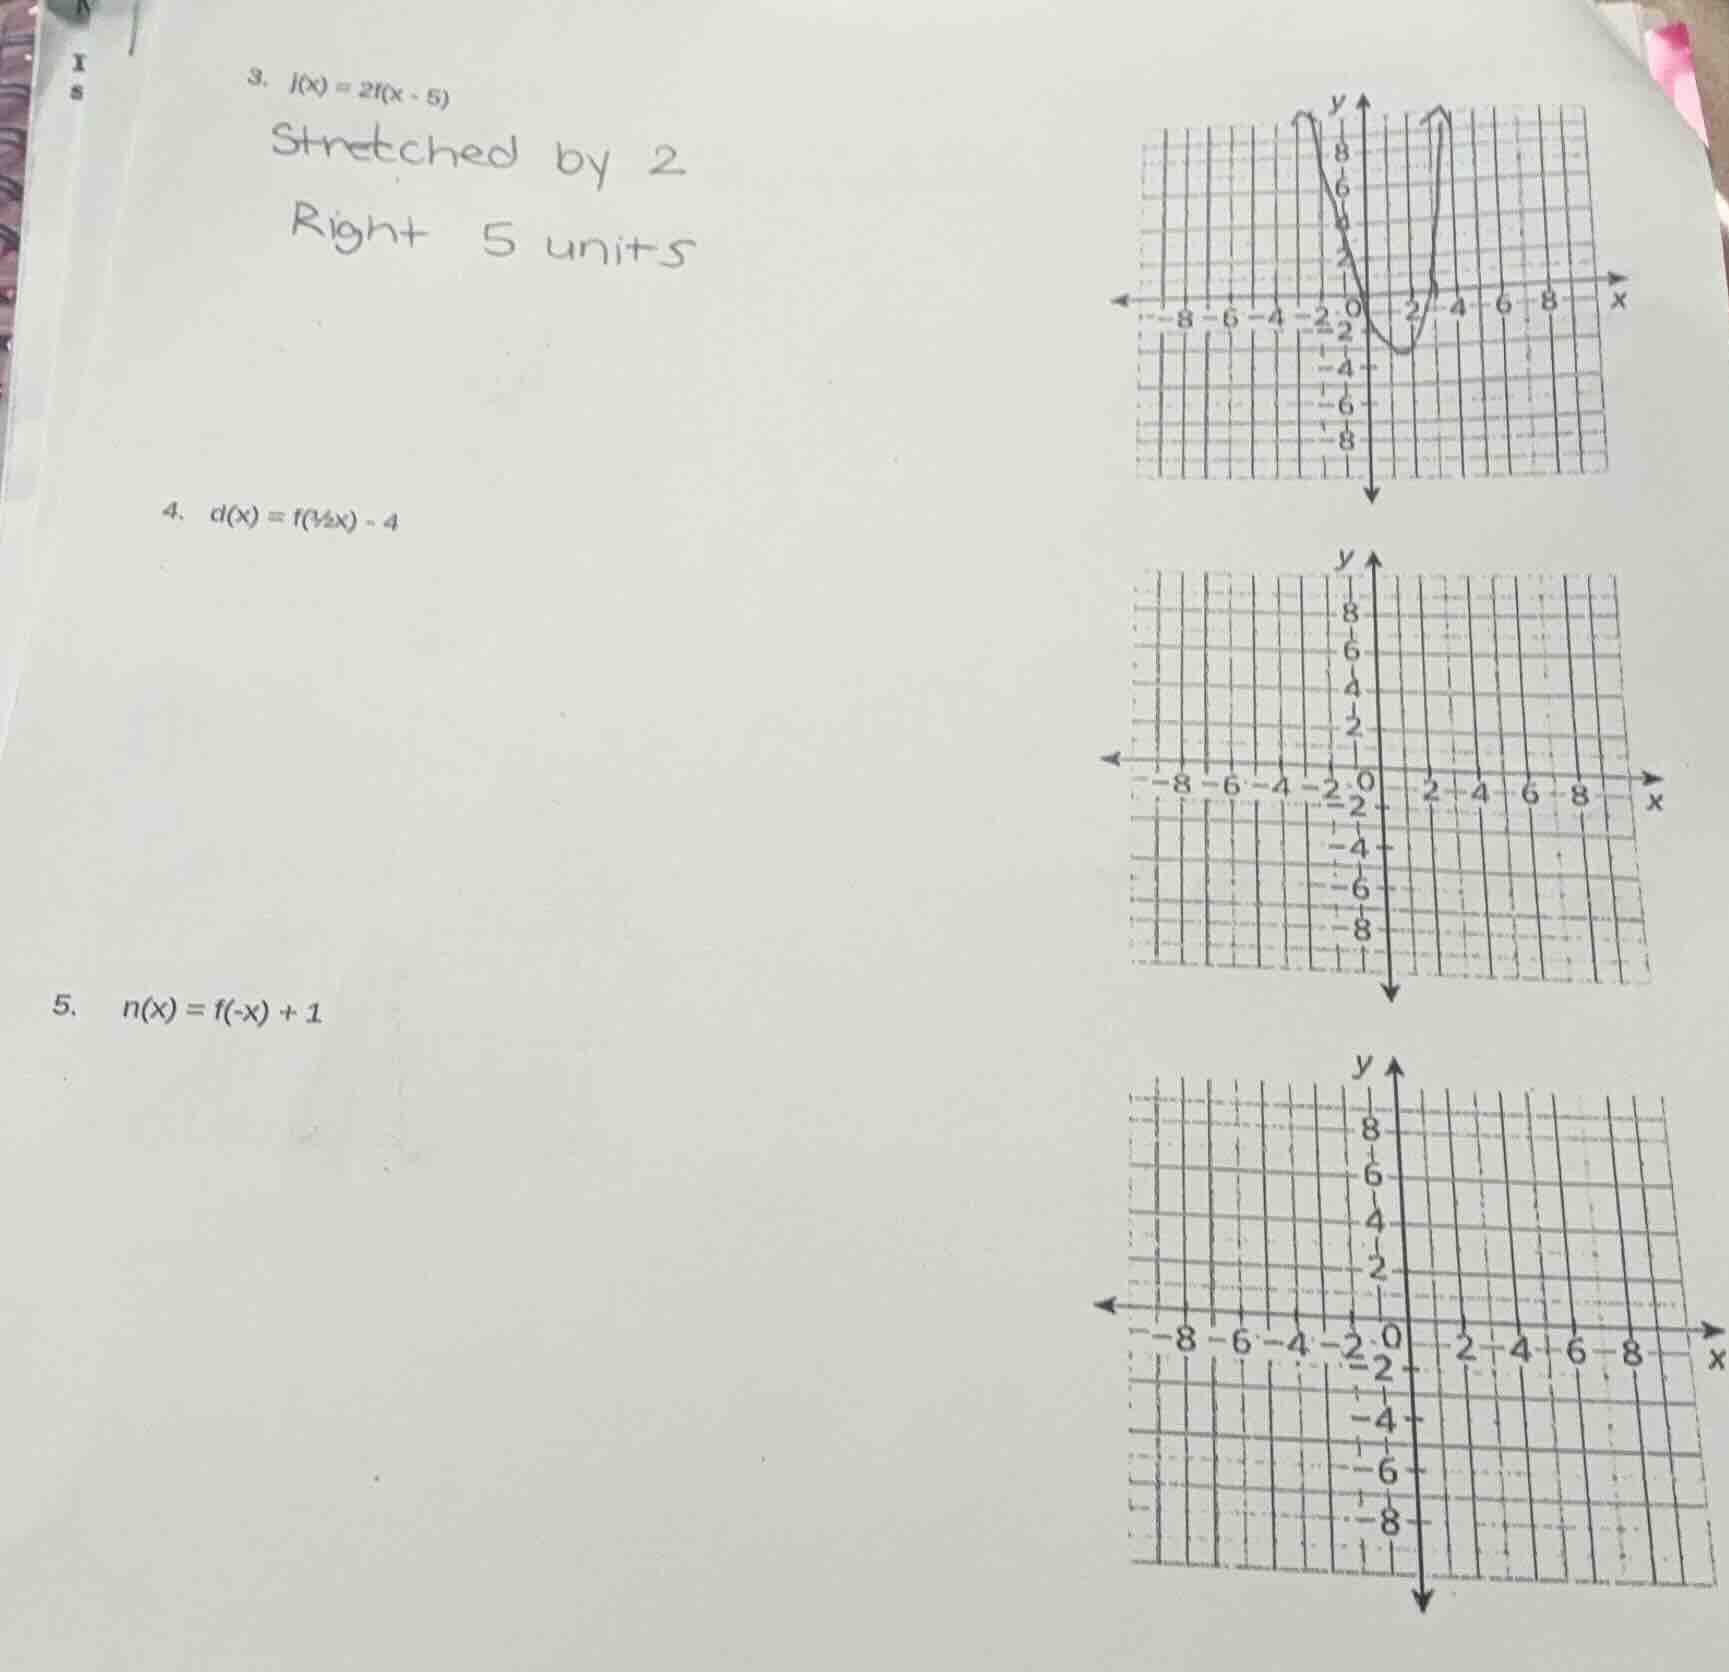 I
s
3. j(x) = 2f(x - 5)
Stretched by 2
Right 5 units
y
8
6
4
2
-8 -6 -4 -2 0 2 4 6 8 x
-2
-4
-6
-8
4. d(x) = f(½x) - 4
y
8
6
4
2
-8 -6 -4 -2 0 2 4 6 8 x
-2
-4
-6
-8
5. n(x) = f(-x) + 1
y
8
6
4
2
-8 -6 -4 -2 0 2 4 6 8 x
-2
-4
-6
-8